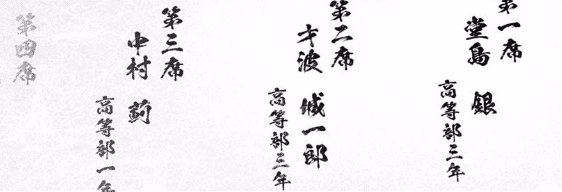 第一席
堂島 銀
高等部三年
第二席
才波 城一郎
高等部三年
第三席
中村 薊
高等部一年
第四席